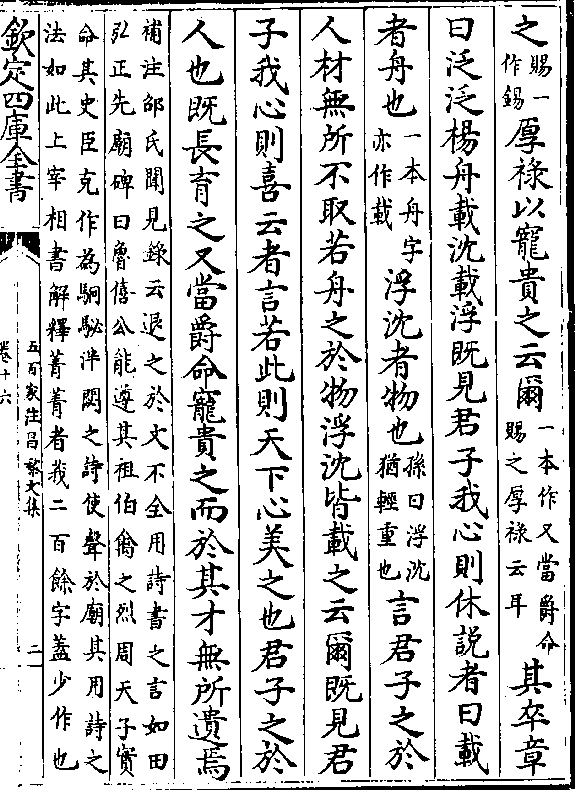 之賜一作錫厚祿以寵貴之云爾一本作又當爵命賜之厚祿云耳其卒章
曰泛泛楊舟載沈載浮既見君子我心則休說者曰載
者舟也一本舟字亦作載浮沈者物也孫曰浮沈猶輕重也言君子之於
人材無所不取若舟之於物浮沈皆載之云爾既見君
子我心則喜云者言若此則天下心美之也君子之於
人也既長育之又當爵命寵貴之而於其才無所遺焉
補注邵氏聞見錄云退之於文不全用詩書之言如田
弘正先廟碑曰魯僖公能遵其祖伯禽之烈周天子實
命其史臣克作為駉駜泮閟之詩使聲於廟其用詩之
法如此上宰相書解釋菁菁者莪二百餘字蓋少作也
欽定四庫全書
五百家注昌黎文集
卷十六
二